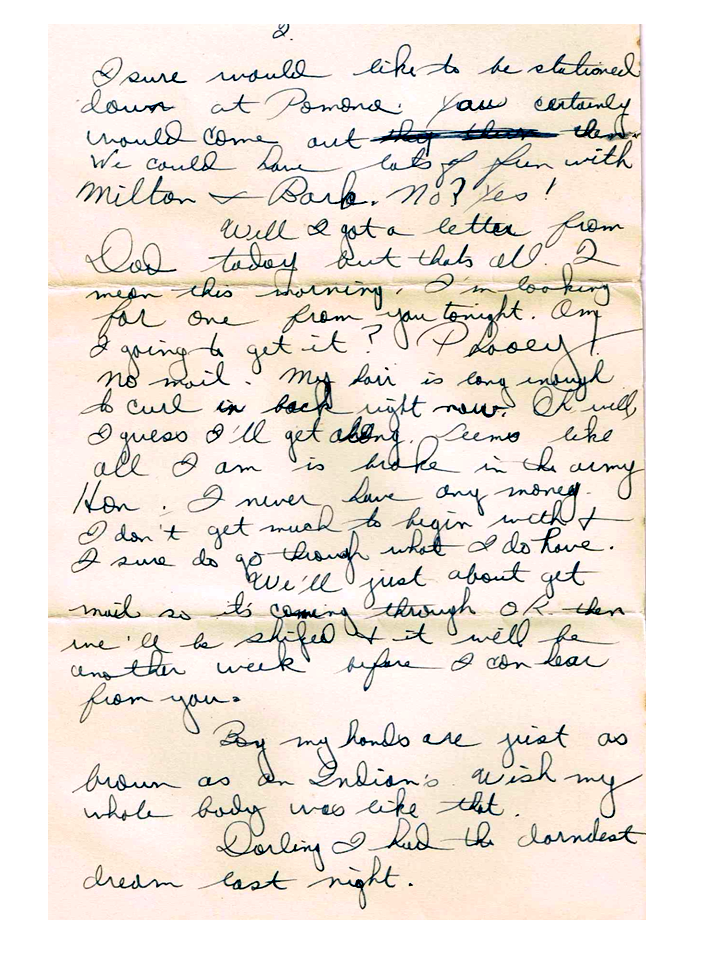 2.
I sure would like to be stationed
down at Pomona. You certainly
would come out then.
We could have lots of fun with
Milton & Barb. No? Yes!
Well I got a letter from
Dad today but thats all. I
mean this morning. I'm looking
for one from you tonight. Am
I going to get it? Phooey!
No mail. My hair is long enough
to curl in back right now. Oh well,
I guess I'll get along. Seems like
all I am is broke in the army
Hon. I never have any money.
I don't get much to begin with &
I sure do go though what I do have.
We'll just about get
mail so it's coming through OK then
we'll be shifed & it will be
another week before I can hear
from you.
Boy my hands are just as
brown as an Indian's. Wish my
whole body was like that.
Darling I had the darndest
dream last night.